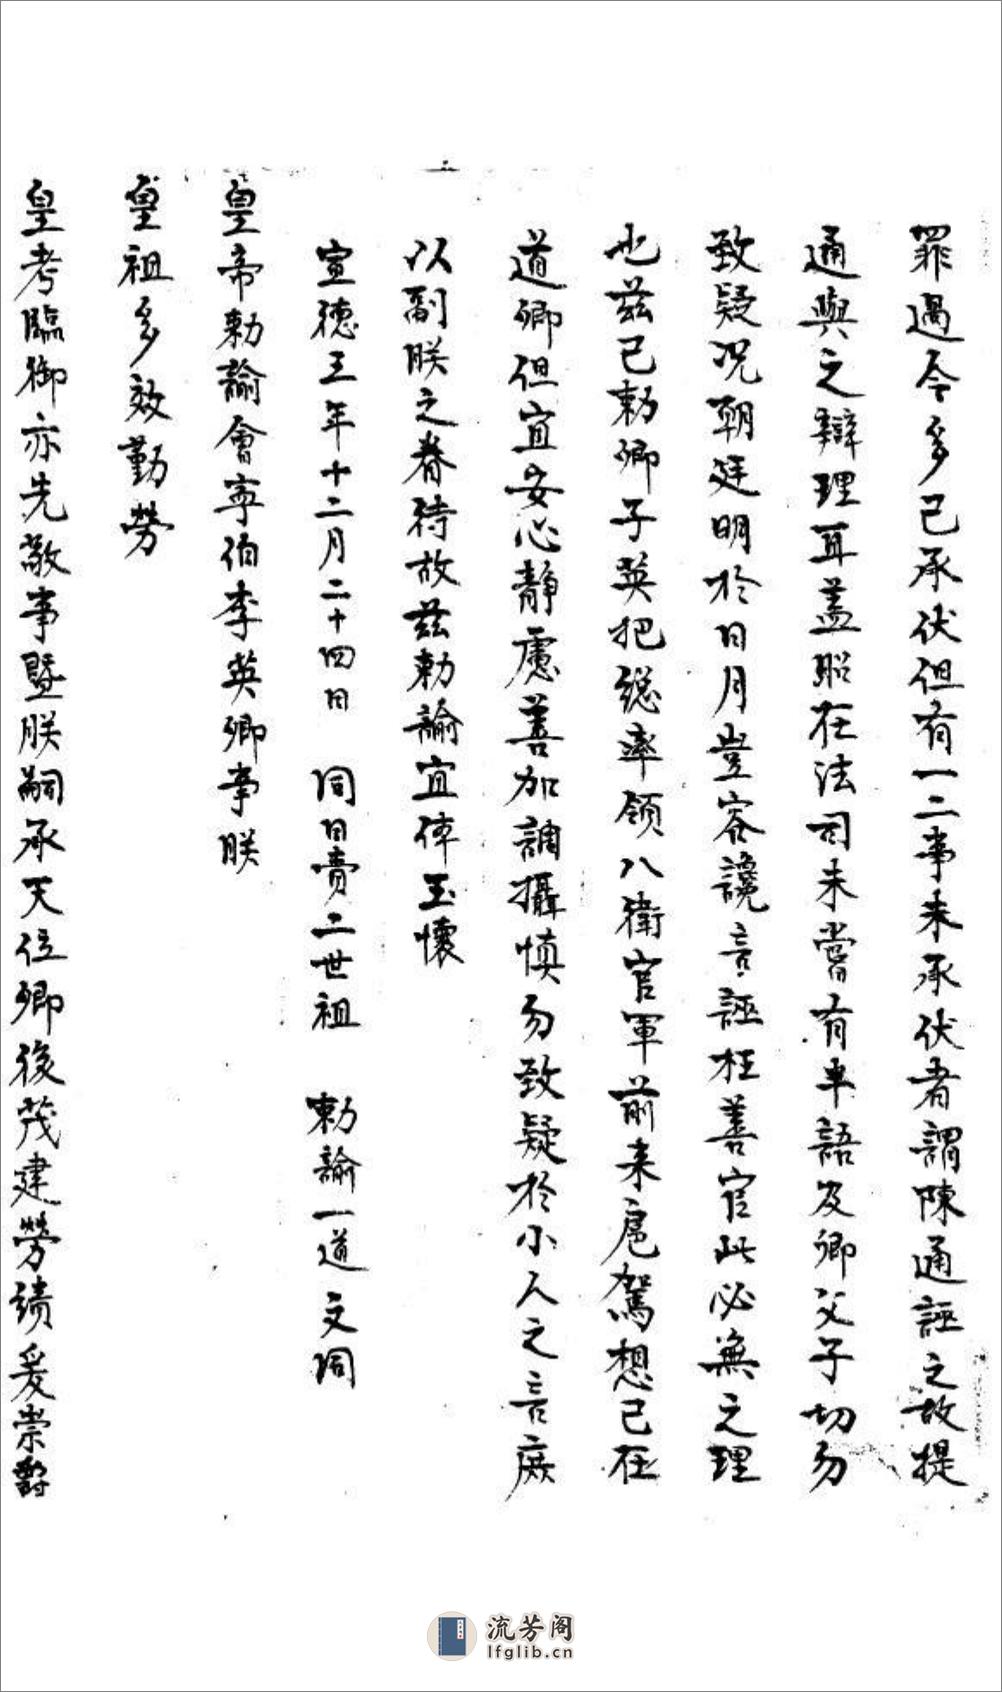 罪過今多已承伏但有一二事未承伏者謂陳通誣之故提
通與之辯理耳盖昭在法司未嘗有車語及卿父子切勿
致疑况朝廷明於日月豈容讒言誣枉善官此必無之理
也兹已勅卿子英把總率領八衛官軍前来扈駕想已在
道卿但宜安心静慮善加調攝慎勿致疑於小人之言庶
以副朕之眷待故兹勅諭宜体至懷
宣德三年十二月二十四日 同日賫二世祖 勅諭一道文同
皇帝勅諭會寧伯李英卿事朕
皇祖多效勤勞
皇考臨御亦先敬事暨朕嗣承天位卿後茂建勞績爰崇爵
流芳阁
lfglib.cn